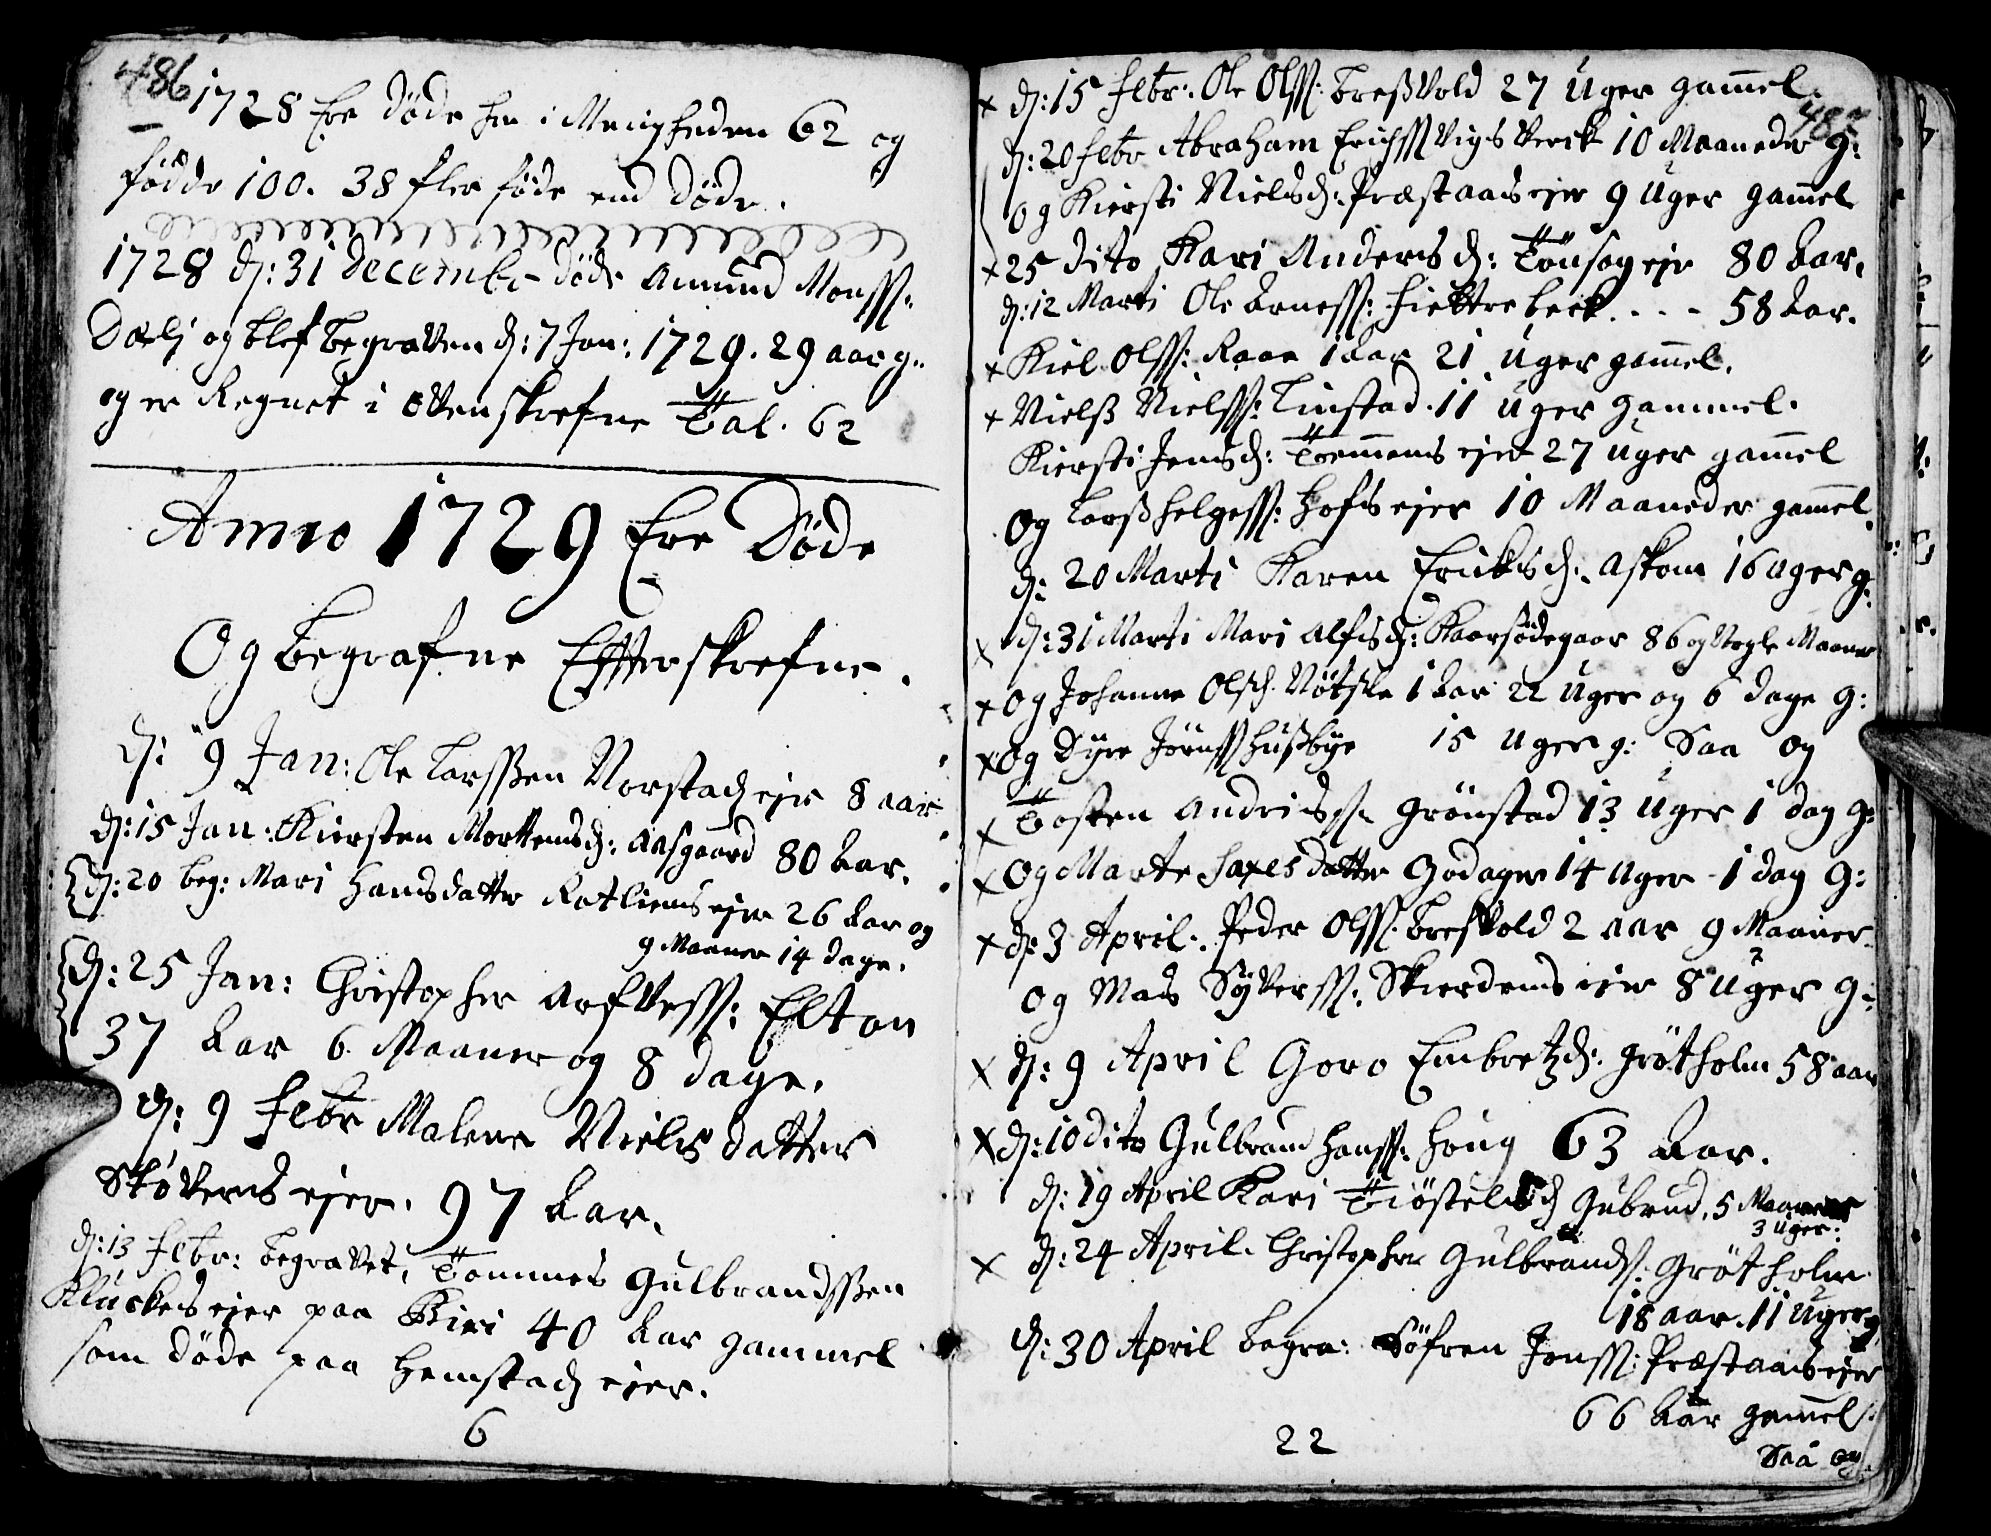 486
1728 Ere døde her i Menigheden 62 og
fødde 100. 38 fler føde end døde.
1728 d: 31 decembr døde Amund Monss:
Dæli og blef begraven d: 7 Jan: 1729. 29 aar g:
og er Regnet i ovenskrefne Tal. 62
Anno 1729 Ere Døde
Og begrafne Effterskrefne.
d: 9 Jan: Ole Larssen Norstad ejer 8 aar
d: 15 Jan: Kiersten Mortensd: Aasgaard 80 Aar.
d: 20 beg: Mari Hansdatter Rotliens ejer 26 Aar og
9 Maaner 14 dage.
d: 25 Jan: Christopher Arfvess: Elton
37 Aar 6 Maaner og 8 dage.
d: 9 Febr Malene Niels datter
Støvens ejer. 97 Aar.
d: 13 Febr: begravet, Tommes Gulbrandssen
Kluckes ejer paa Biri 40 Aar gammel
som døde paa Hemstad ejer.
6
487
x d: 15 Febr: Ole Olss: Bressvold 27 Uger gamel.
d: 20 Febr Abraham Erichss Vigs Verck 10 Maaneder g:
og Kiersti Nielsd: Præstaas ejer 9 Uger gamel
x 25 dito Kari Anders d: Tønsag ejer 80 Aar.
d: 12 Marti Ole Arness: Fiettre beck . . . - 58 Aar.
x Kiel Olss: Raae 1 Aar 21 Uger gamel.
x Nielss Nielss: Linstad. 11 Uger gammel.
Kiersti Jensd: Tommens ejer 27 Uger gamel
Og Larss Helgess: Hofs ejer 10 Maaneder gamel.
d: 20 Marti Karen Erichsd: Askom 16 Uger g:
x d: 31 Marti Mari Alfsd: Kaarsødegaar 86 og Nogle Maaner
x og Johanne Olsd: Nøtsle 1 Aar 22 Uger og 6 dage g:
x og Dyre Jørnss Hussbye 15 Uger g: Saa og
x Tosten Andriss: Grønstad 13 Uger 1 dag g:
x Og Marte Saxes datter Godager 14 Uger 1 dag g:
x d: 3 April: Peder Olss: Bresvold 2 aar 9 Maaner
og Mads Syverss: Skierdens ejer 8 Uger g:
x d: 9 April Goro Embretzd: Grøtholm 58 aar
x d: 10 dito Gulbrand Hanss: Houg 63 Aar.
d: 19 April Kari Tiøstelsd Gubrud, 5 Maaner
3 Uger:
x d: 24 April. Christopher Gulbrands: Grøtholm
18 aar. 11 Uger g
d: 30 April begra: Søfren Jonss: Præstaas ejer
66 Aar gamel:
22
Saa og